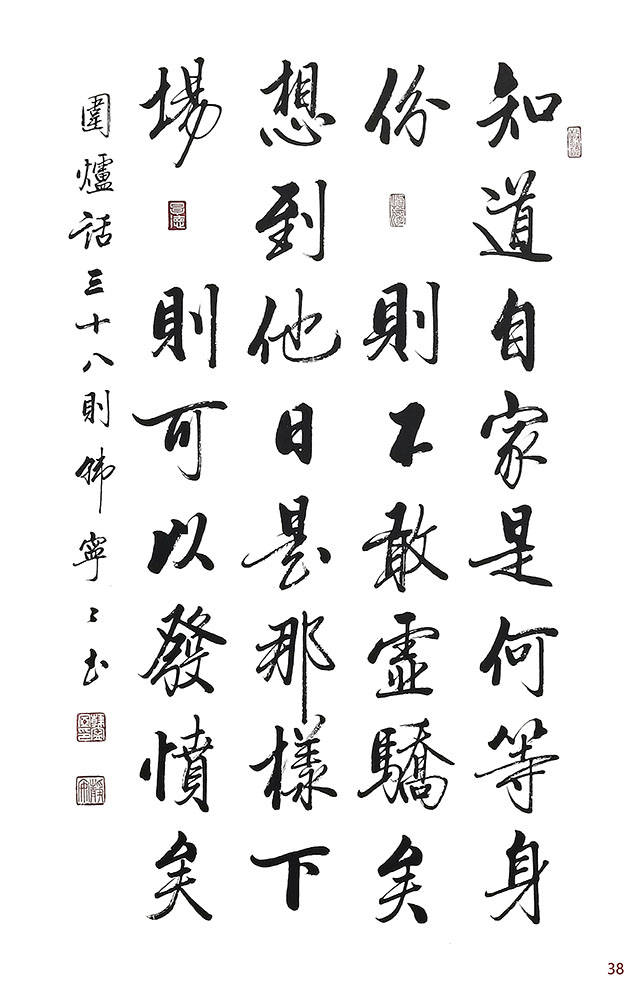 知道自家是何等身
份則不敢虛驕矣
想到他日是那樣下
場則可以發憤矣
圍爐話三十八則韩寧〻书
38